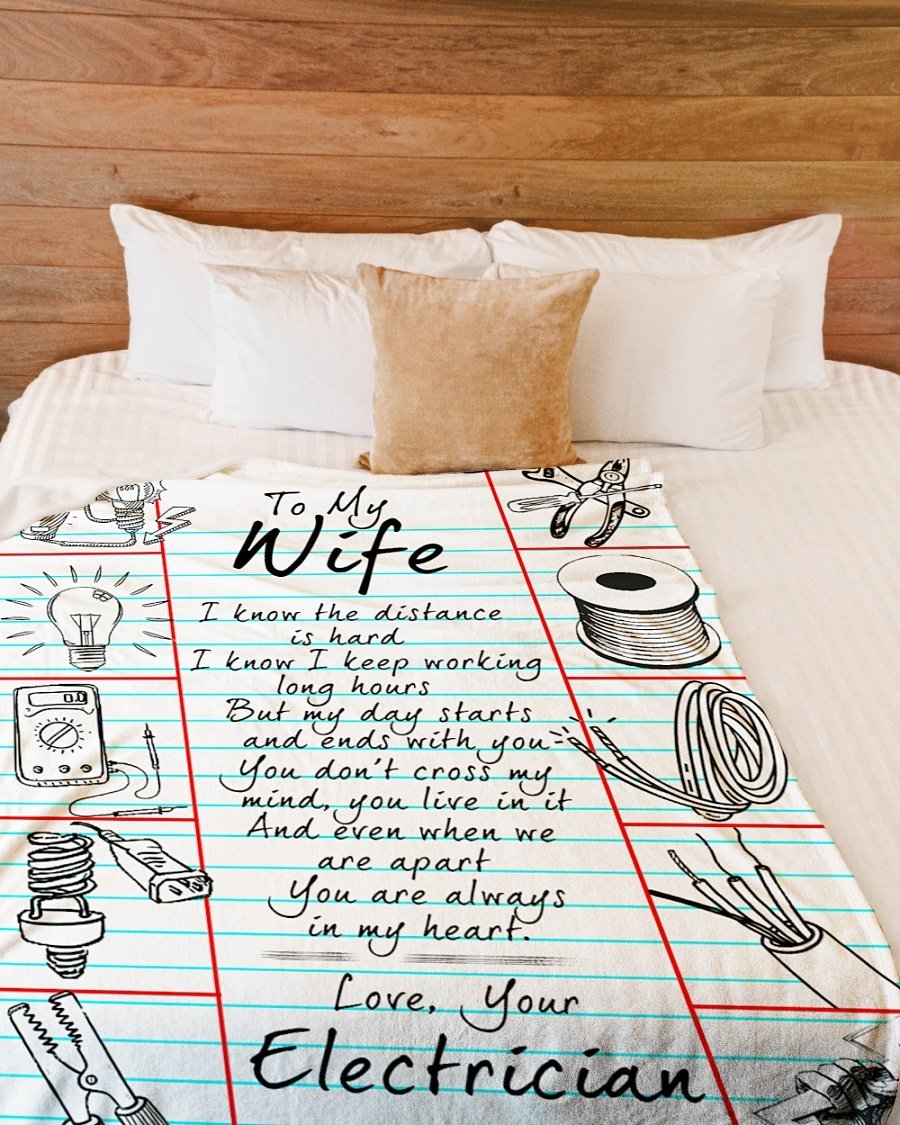 To My
Wife
I know the distance
is hard
I know I keep working
long hours
But my day starts
and ends with you
You don't cross my
mind, you live in it
And even when we
are apart
You are always
in my heart.
Love, Your
Electrician